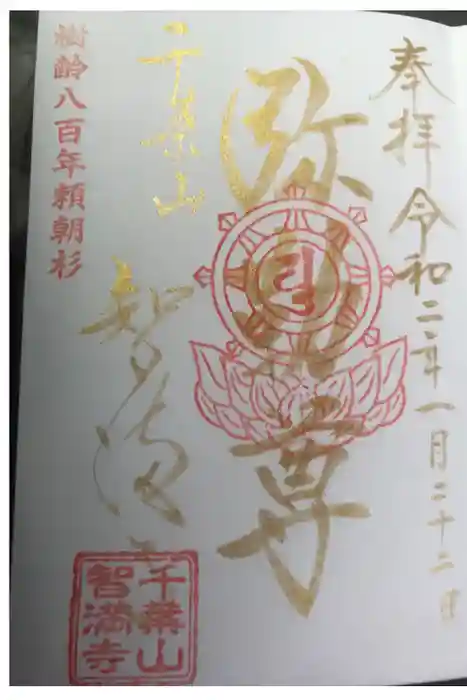 奉拝 令和二年一月二十二日
弥勒尊
千葉山
智満寺
樹齢八百年頼朝杉
千葉山
智満寺